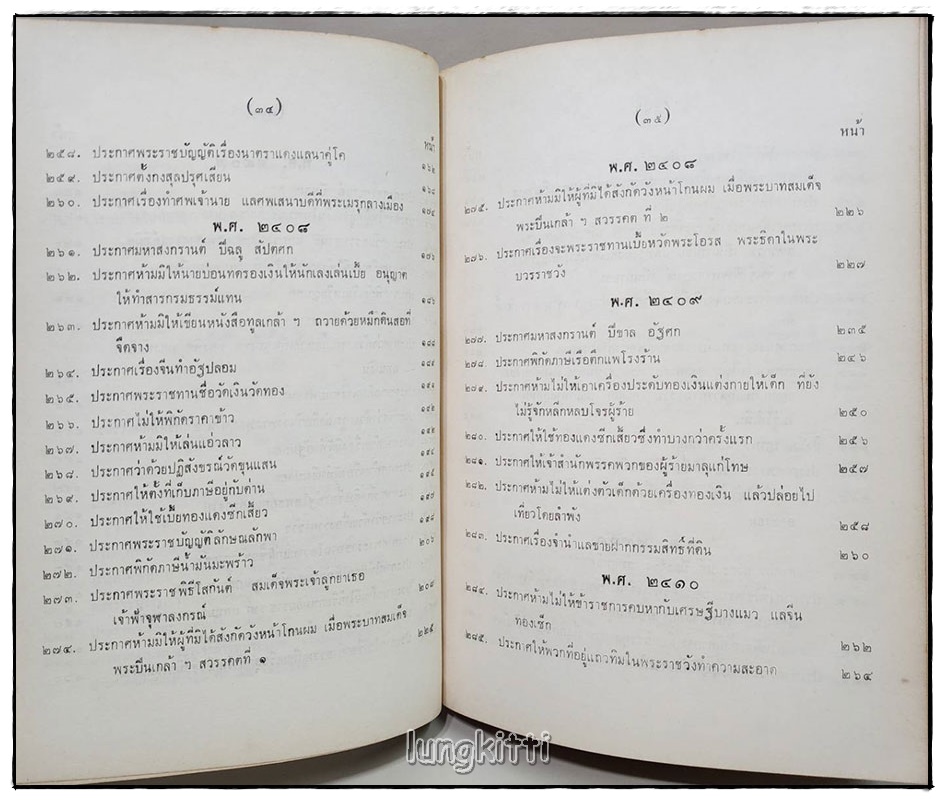 (๓๔)
หน้า
๒๕๘. ประกาศพระราชบัญญัติเรื่องนาตราแดงแลนาคู่โค ๑๖๒
๒๕๙. ประกาศตั้งกงสุลปรุศเสียน ๑๖๘
๒๖๐. ประกาศเรื่องทำศพเจ้านาย แลศพเสนาบดีที่พระเมรุกลางเมือง ๑๗๔
พ.ศ. ๒๔๐๘
๒๖๑. ประกาศมหาสงกรานต์ ปีฉลู สัปตศก ๑๗๖
๒๖๒. ประกาศห้ามมิให้นายบ่อนทดรองเงินให้นักเลงเล่นเบี้ย อนุญาต
ให้ทำสารกรมธรรม์แทน ๑๘๖
๒๖๓. ประกาศห้ามมิให้เขียนหนังสือทูลเกล้า ฯ ถวายด้วยหมึกดินสอที่
จืดจาง ๑๘๘
๒๖๔. ประกาศเรื่องจีนทำอัฐปลอม
๒๖๕. ประกาศพระราชทานชื่อวัดเงินวัดทอง
๒๖๖. ประกาศไม่ให้พิกัดราคาข้าว
๒๖๗. ประกาศห้ามมิให้เล่นแอ่วลาว
๒๖๘. ประกาศว่าด้วยปฏิสังขรณ์วัดขุนแสน
๒๖๙. ประกาศให้ตั้งที่เก็บภาษีอยู่กับด่าน ๑๙๗
๒๗๐. ประกาศให้ใช้เบี้ยทองแดงซีกเสี้ยว ๑๙๘
๒๗๑. ประกาศพระราชบัญญัติลักษณลักพา ๒๐๖
๒๗๒. ประกาศพิกัดภาษีน้ำมันมะพร้าว
๒๗๓. ประกาศพระราชพิธีโสกันต์ สมเด็จพระเจ้าลูกยาเธอ
เจ้าฟ้าจุฬาลงกรณ์
๒๗๔. ประกาศห้ามมิให้ผู้ที่มิได้สังกัดวังหน้าโกนผม เมื่อพระบาทสมเด็จ
พระปิ่นเกล้า ฯ สวรรคตที่ ๑ ๒๒๕
(๓๕)
หน้า
พ.ศ. ๒๔๐๘
๒๗๕. ประกาศห้ามมิให้ผู้ที่มิได้สังกัดวังหน้าโกนผม เมื่อพระบาทสมเด็จ
พระปิ่นเกล้า ฯ สวรรคต ที่ ๒ ๒๒๖
๒๗๖. ประกาศเรื่องจะพระราชทานเบี้ยหวัดพระโอรส พระธิดาในพระ
บวรราชวัง ๒๒๗
พ.ศ. ๒๔๐๙
๒๗๗. ประกาศมหาสงกรานต์ ปีขาล อัฐศก ๒๓๕
๒๗๘. ประกาศพิกัดภาษีเรือตึกแพโรงร้าน ๒๔๖
๒๗๙. ประกาศห้ามไม่ให้เอาเครื่องประดับทองเงินแต่งกายให้เด็ก ที่ยัง
ไม่รู้จักหลีกหลบโจรผู้ร้าย ๒๕๐
๒๘๐. ประกาศให้ใช้ทองแดงซีกเสี้ยวซึ่งทำบางกว่าครั้งแรก ๒๕๖
๒๘๑. ประกาศให้เจ้าสำนักพรรคพวกของผู้ร้ายมาลุแก่โทษ ๒๕๗
๒๘๒. ประกาศห้ามไม่ให้แต่งตัวเด็กด้วยเครื่องทองเงิน แล้วปล่อยไป
เที่ยวโดยลำพัง ๒๕๘
๒๘๓. ประกาศเรื่องจำนำแลขายฝากกรรมสิทธิ์ที่ดิน ๒๖๐
พ.ศ. ๒๔๑๐
๒๘๔. ประกาศห้ามไม่ให้ข้าราชการคบหากับเศรษฐีบางแมว แลจีน
ทองเซ็ก ๒๖๒
๒๘๕. ประกาศให้พวกที่อยู่แถวทิมในพระราชวังทำความสะอาด ๒๖๔
lungkitti